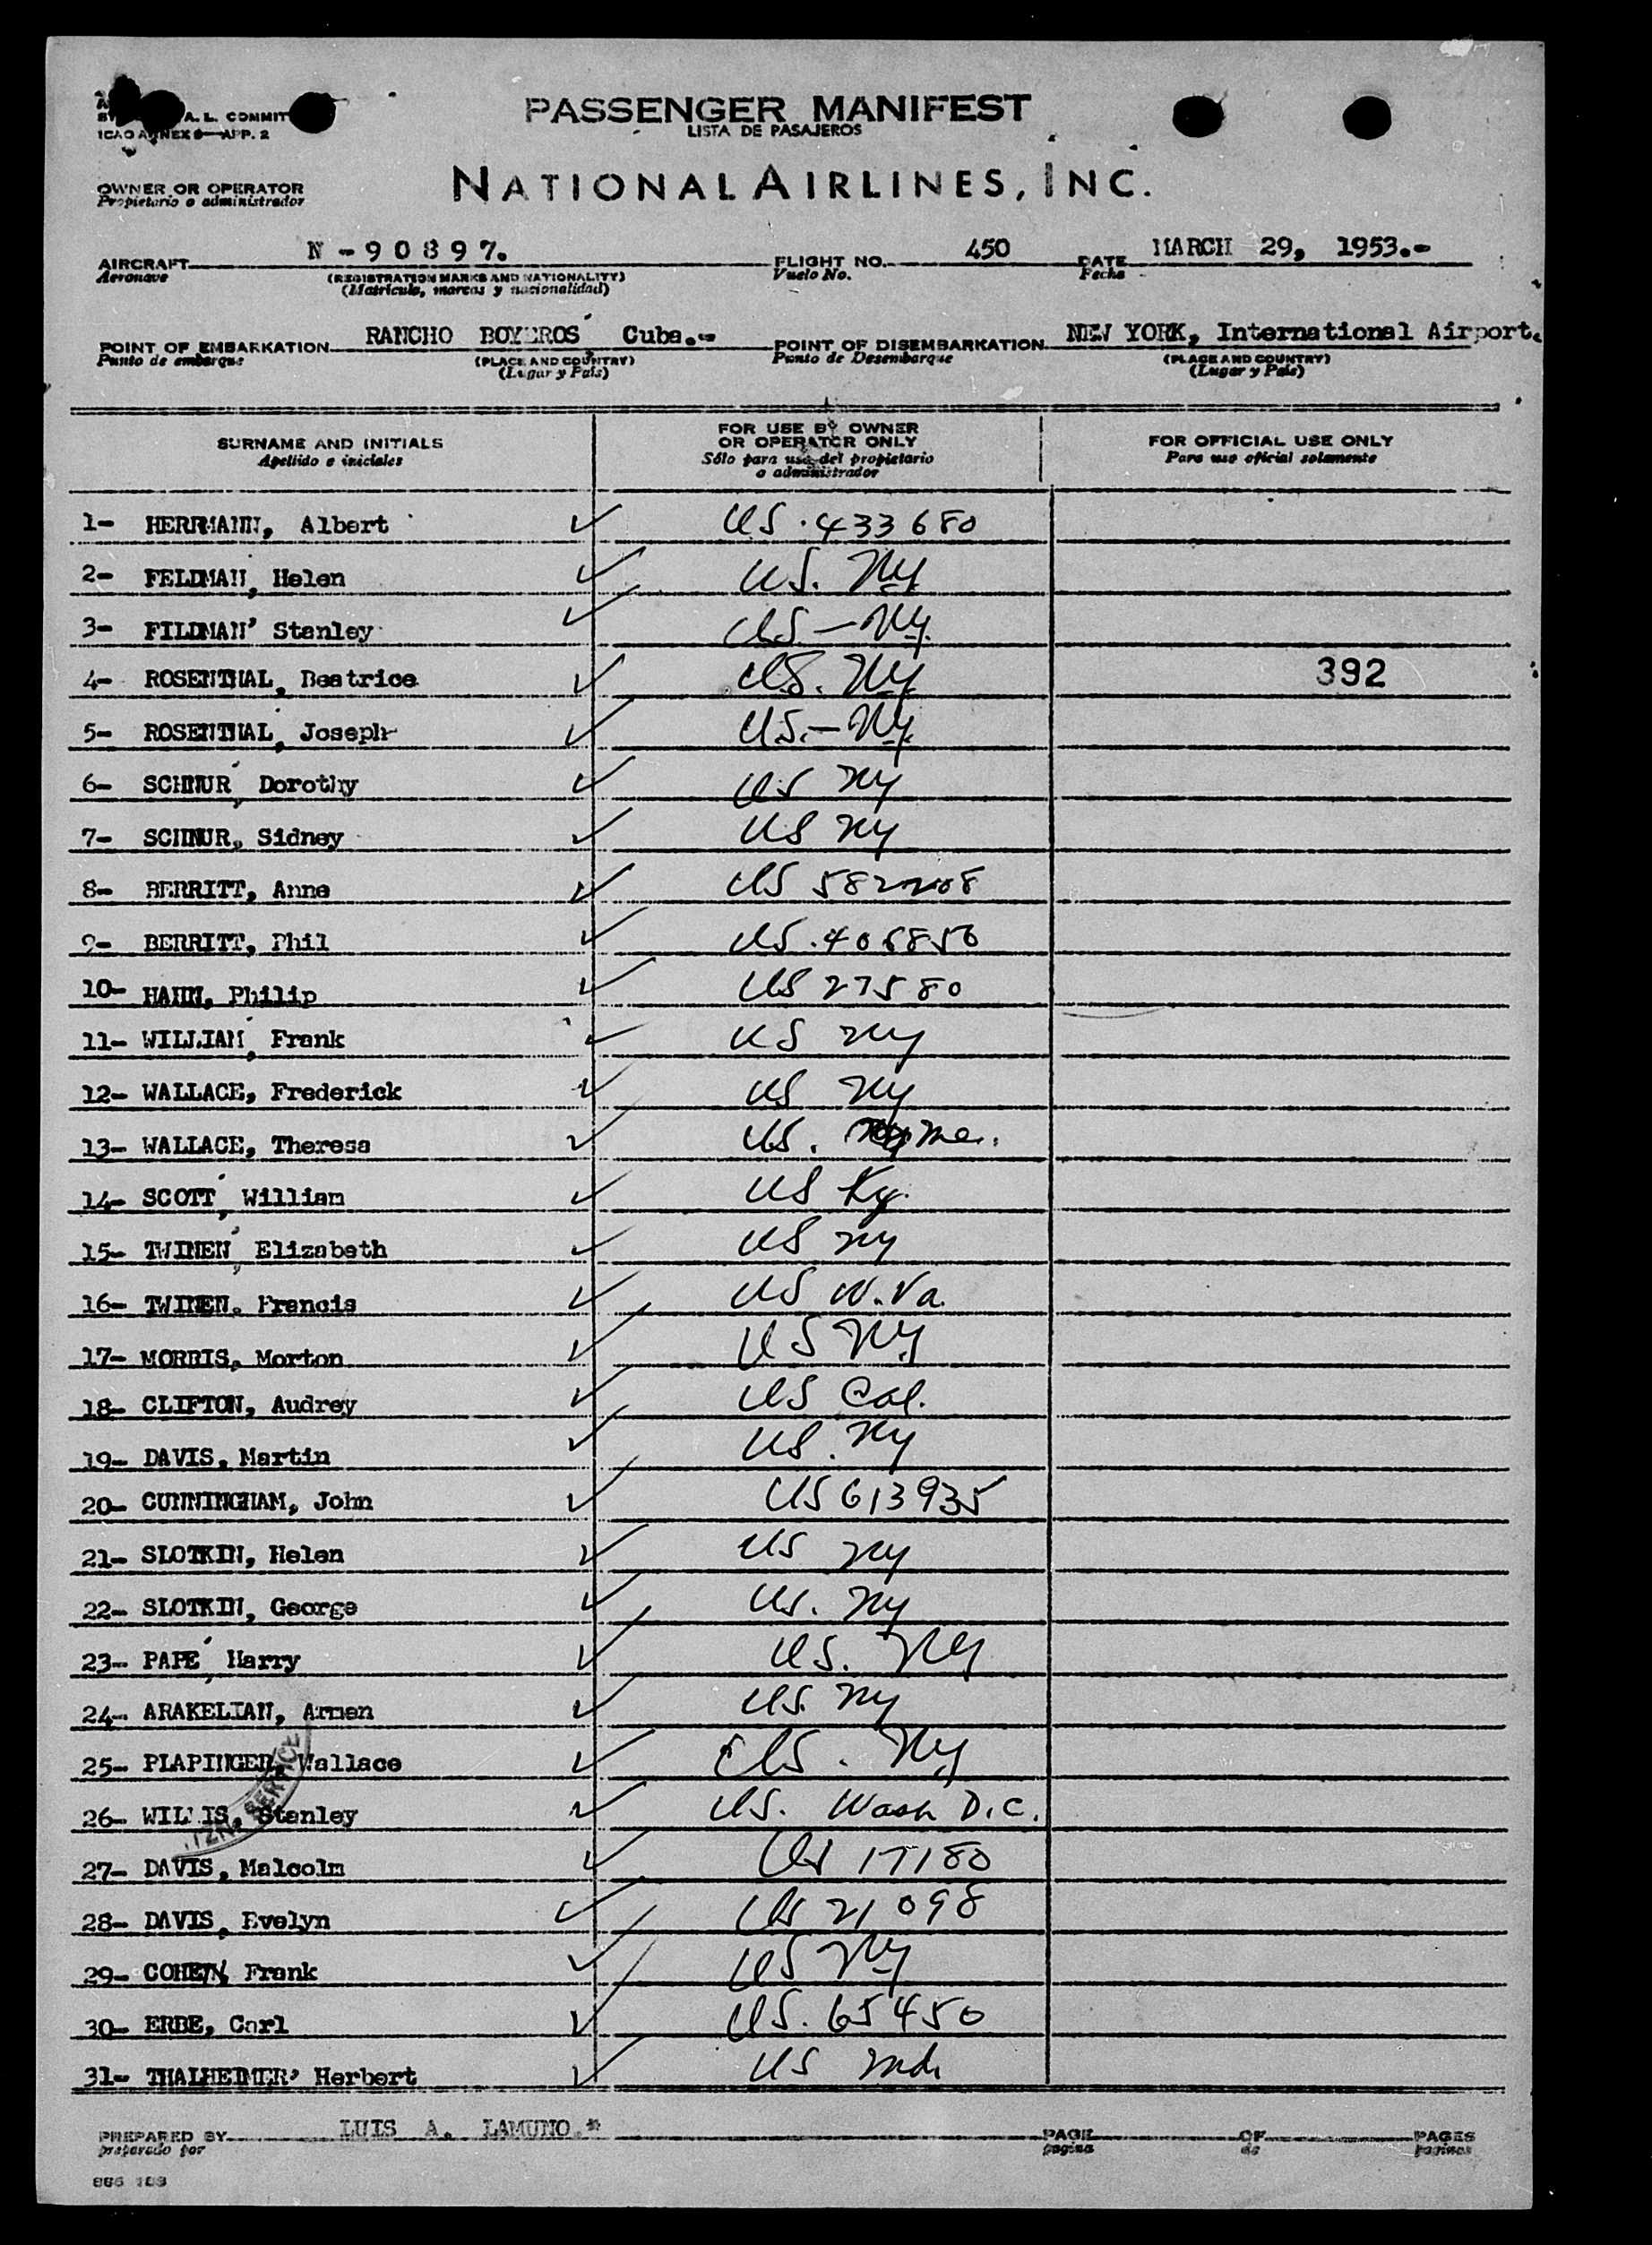 A. L. COMMIT
ICAO ANNEX 9—APP. 2
PASSENGER MANIFEST
LISTA DE PASAJEROS
OWNER OR OPERATOR
Propietario o administrador
NATIONAL AIRLINES, INC.
AIRCRAFT N-90897.
Aeronave
(REGISTRATION MARKS AND NATIONALITY)
(Matricula, marcas y nacionalidad)
FLIGHT NO. 450
Vuelo No.
DATE MARCH 29, 1953.-
Fecha
POINT OF EMBARKATION RANCHO BOYEROS Cuba.-
Punto de embarque
(PLACE AND COUNTRY)
(Lugar y País)
POINT OF DISEMBARKATION NEW YORK, International Airport.
Punto de Desembarque
(PLACE AND COUNTRY)
(Lugar y País)
SURNAME AND INITIALS
Apellido e iniciales
FOR USE BY OWNER
OR OPERATOR ONLY
Sólo para uso del propietario
o administrador
FOR OFFICIAL USE ONLY
Para uso oficial solamente
1- HERRMANN, Albert ✓ US. 433680
2- FELDMAN, Helen ✓ US. NY
3- FILDMAN' Stanley ✓ US - NY.
4- ROSENTHAL, Beatrice ✓ US. NY 392
5- ROSENTHAL, Joseph ✓ US.- NY.
6- SCHNUR, Dorothy ✓ US NY
7- SCHNUR, Sidney ✓ US NY
8- BERRITT, Anne ✓ US
9- BERRITT, Phil ✓ US.
10- HAHN, Philip ✓ US 27580
11- WILLIAM, Frank ✓ US NY
12- WALLACE, Frederick ✓ US NY
13- WALLACE, Theresa ✓ US. Me.
14- SCOTT, William ✓ US Ky.
15- TWINEN, Elizabeth ✓ US NY
16- TWINEN. Francis ✓ US W.Va.
17- MORRIS, Morton ✓ US NY
18- CLIFTON, Audrey ✓ US Cal.
19- DAVIS, Martin ✓ US. NY
20- CUNNINGHAM, John ✓ US 613935
21- SLOTKIN, Helen ✓ US NY
22- SLOTKIN, George ✓ US. NY
23- PAPE, Harry ✓ US. NY
24- ARAKELIAN, Armen ✓ US. NY
25- PLAPINGER, Wallace ✓ US. NY
26- WILLIS, Stanley ✓ US. Wash D.C.
27- DAVIS, Malcolm ✓ US 17180
28- DAVIS, Evelyn ✓ US 21098
29- COHEN, Frank ✓ US NY
30- ERBE, Carl ✓ US. 65450
31- THALHEIMER' Herbert ✓ US Md.
PREPARED BY LUIS A. LAMUNO.*
preparado por
PAGE
pagina
OF
de
PAGES
paginas